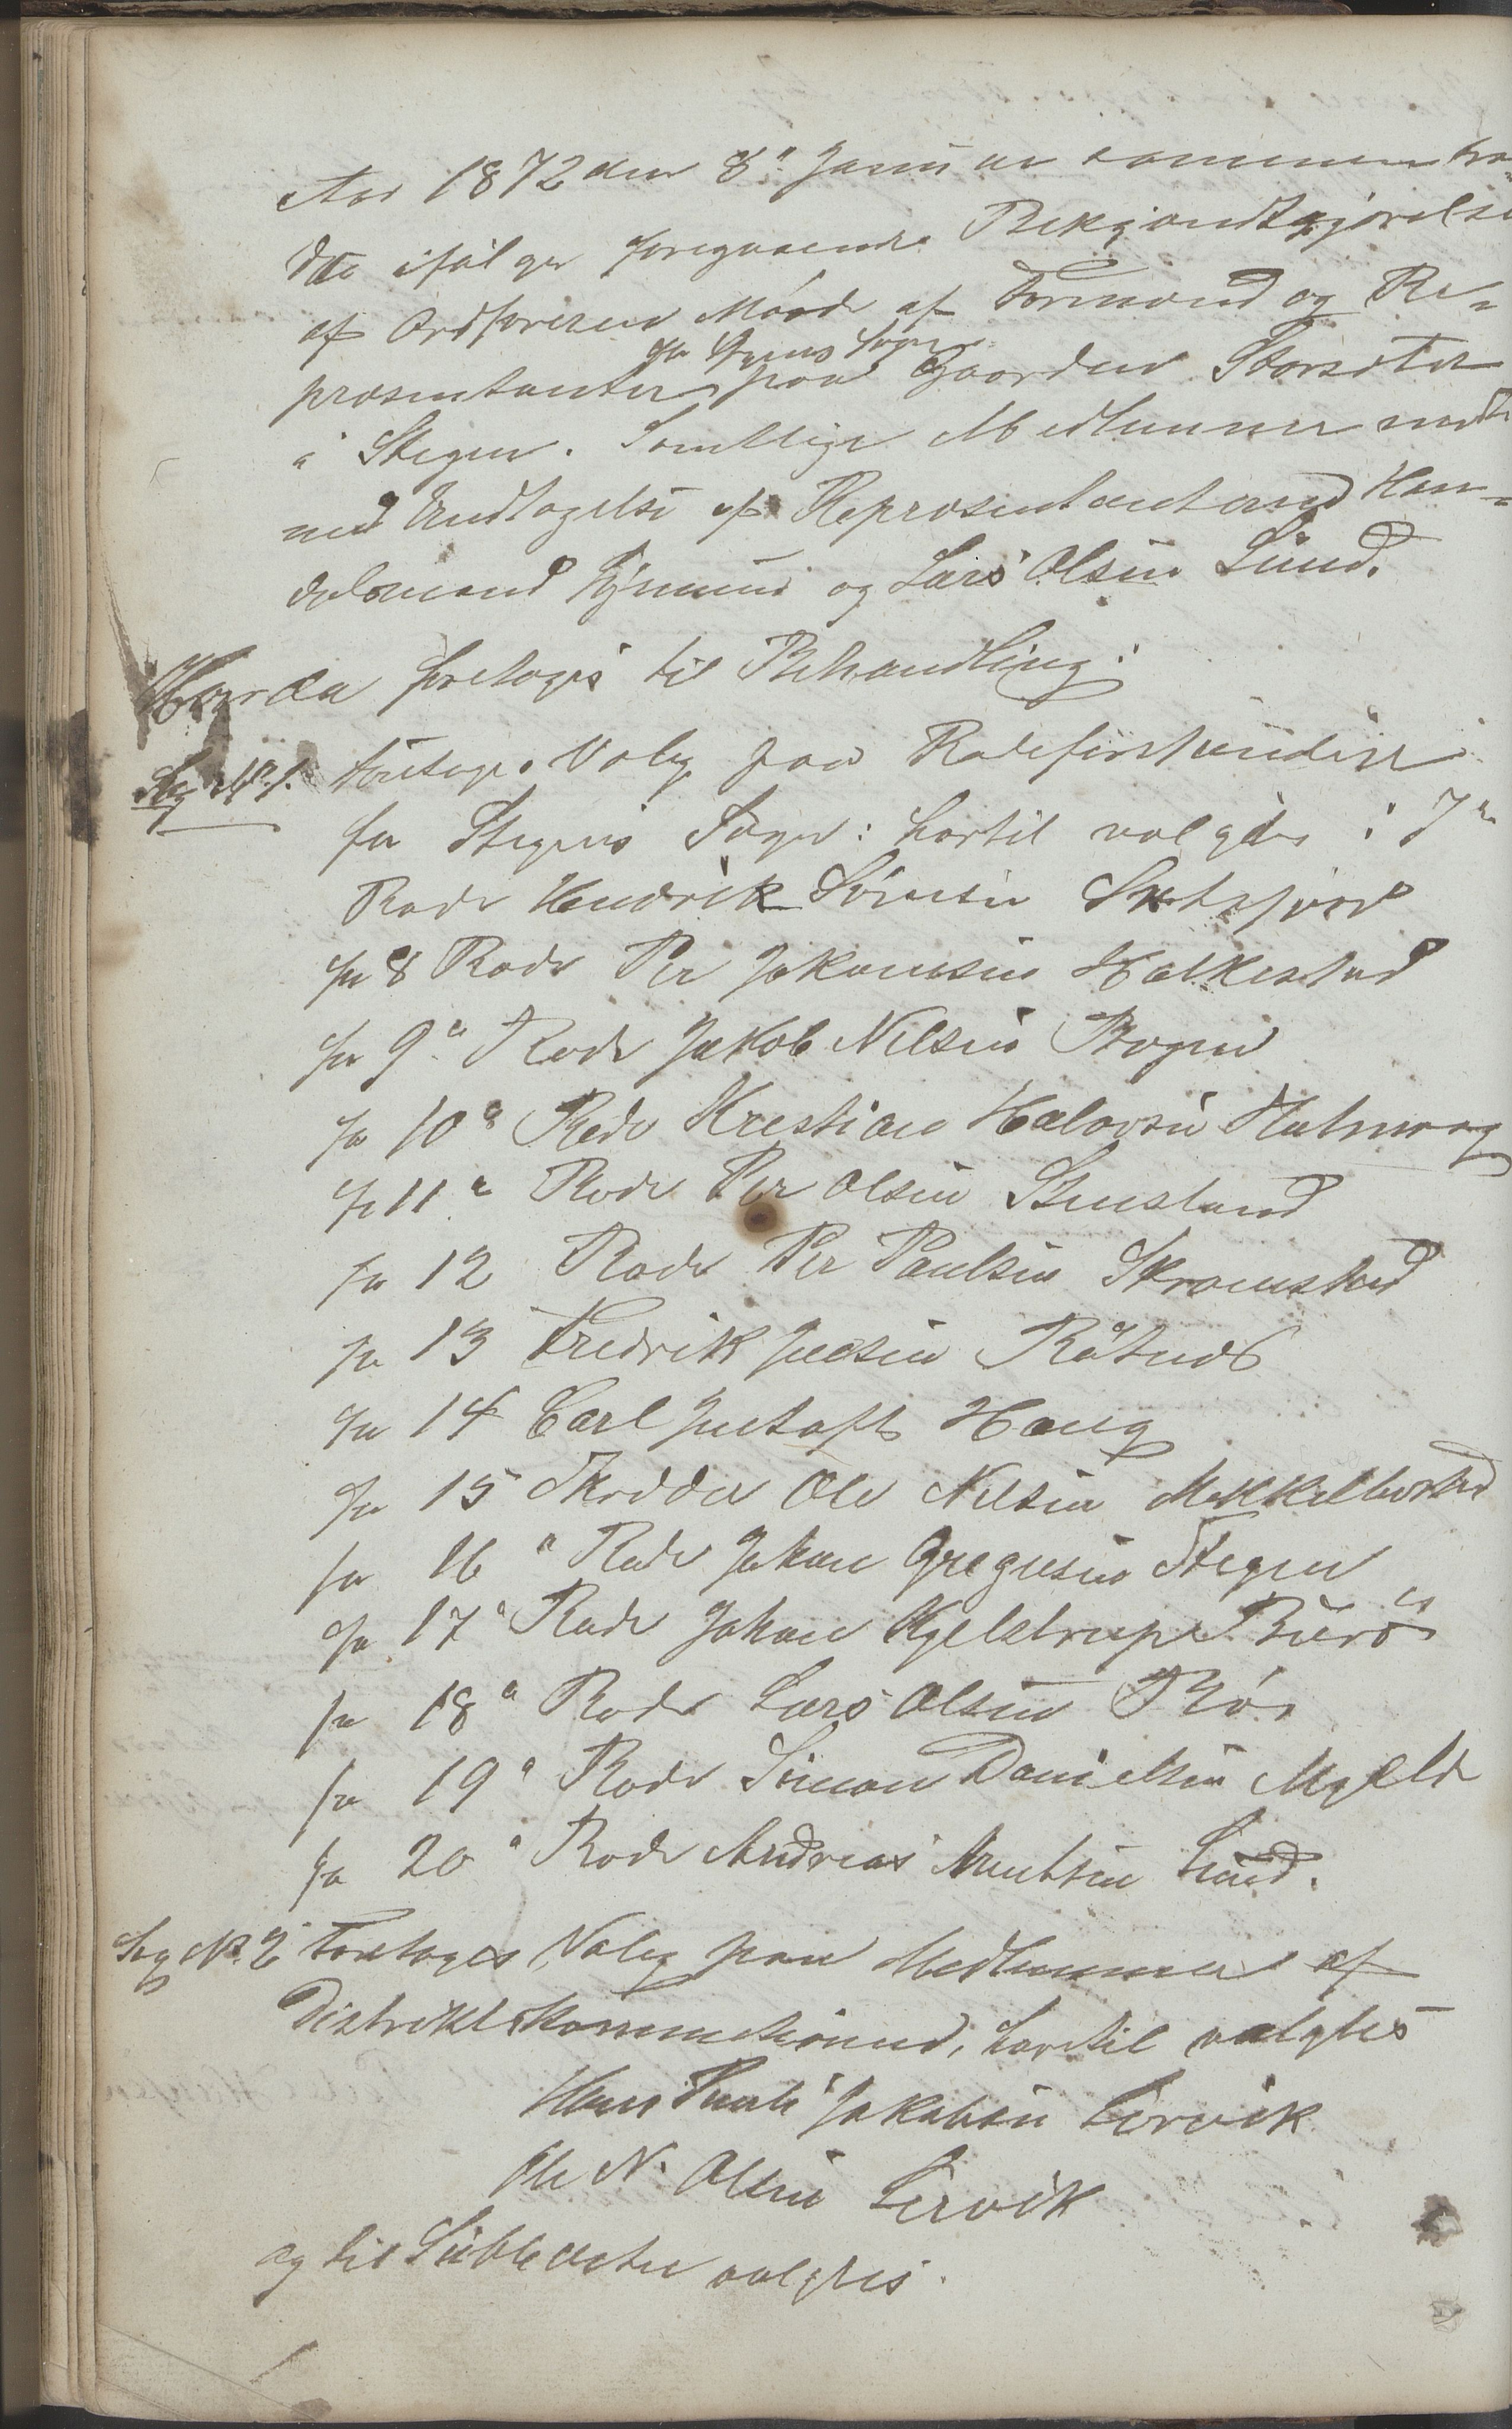 Aar 1872 den 8de Januar sammentraa-
dte ifølge foregaaende Bekjendtgjørelse
af Ordføreren Møde af Formænd og Re-
for Stegens Sogn
præsentanter paa Gaarden Storsæter
i Stegen. Samtlige Medlemmer mødte
med Undtagelse af Repræsentanterne Han-
delsmand og Lars Olsen Lund.
Hvorda foretoges til Behandling:
Sag No. 1. Foretoges Valg paa Rodeforstandere
for Stegens Sogn: hertil valgtes i 7de
Rode Hendrik Sørensen
for 8 Rode Per Johansen Halkestad
for 9de Rode Jakob Nilsen Bogen
for 10de Rode Krestian Halvorsen Holmvaag
for 11te Rode Per Olsen Stensland
for 12 Rode Per Paulsen Skromstad
for 13 Fredrik Juelsen Røtnes
for 14 Carl Gustafs Haug
for 15 Skrædder Ole Nilsen Mikkelbostad
for 16de Rode Johan Gregusen Stegen
for 17de Rode Johan Kjelstrup Burø
for 18de Rode Lars Olsen Bø
for 19de Rode Simon Danielsen Myklde
for 20de Rode Andreas Arntsen Lund.
Sag No. 2 Foretoges Valg paa Medlemmer af
Distriktskommissionen, hertil valgtes
Hans Jakobsen Lervik
Ole N. Olsen Lervik
og til Suppleanter valgtes